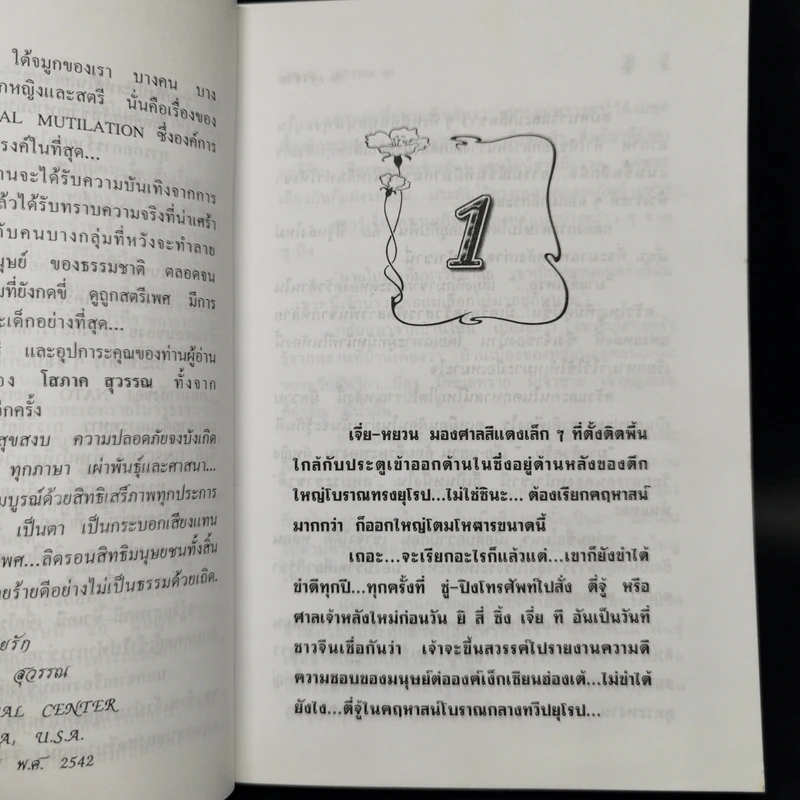 ใต้จมูกของเรา บางคน บาง
กหญิงและสตรี นั่นคือเรื่องของ
AL MUTILATION ซึ่งองค์การ
รงค์ในที่สุด...
านจะได้รับความบันเทิงจากการ
ล้วได้รับทราบความจริงที่น่าเศร้า
กับคนบางกลุ่มที่หวังจะทำลาย
นุษย์ ของธรรมชาติ ตลอดจน
มที่ยังกดขี่ ดูถูกสตรีเพศ มีการ
ะเด็กอย่างที่สุด...
และอุปการะคุณของท่านผู้อ่าน
อง โสภาค สุวรรณ ทั้งจาก
อีกครั้ง
สุขสงบ ความปลอดภัยจงบังเกิด
ทุกภาษา เผ่าพันธุ์และศาสนา...
มบูรณ์ด้วยสิทธิเสรีภาพทุกประการ
เป็นตา เป็นกระบอกเสียงแทน
เพศ...ลิดรอนสิทธิมนุษยชนทั้งสิ้น
ายร้ายดีอย่างไม่เป็นธรรมด้วยเถิด.
ยรัก
สุวรรณ
AL CENTER
A, U.S.A.
พ.ศ. 2542
1
เจี่ย-หยวน มองศาลสีแดงเล็ก ๆ ที่ตั้งติดพื้น
ใกล้กับประตูเข้าออกด้านในซึ่งอยู่ด้านหลังของตึก
ใหญ่โบราณทรงยุโรป...ไม่ใช่ซินะ... ต้องเรียกคฤหาสน์
มากกว่า ก็ออกใหญ่โตมโหฬารขนาดนี้
เถอะ...จะเรียกอะไรก็แล้วแต่...เขาก็ยังขำได้
ขำดีทุกปี...ทุกครั้งที่ ซู่-ปิงโทรศัพท์ไปสั่ง ตี่จู้ หรือ
ศาลเจ้าหลังใหม่ก่อนวัน ยิ สี่ ซิ้ง เจี่ย ที อันเป็นวันที่
ชาวจีนเชื่อกันว่า เจ้าจะขึ้นสวรรค์ไปรายงานความดี
ความชอบของมนุษย์ต่อองค์เง็กเซียนฮ่องเต้...ไม่ขำได้
ยังไง...ตี่จู้ในคฤหาสน์โบราณกลางทวีปยุโรป...